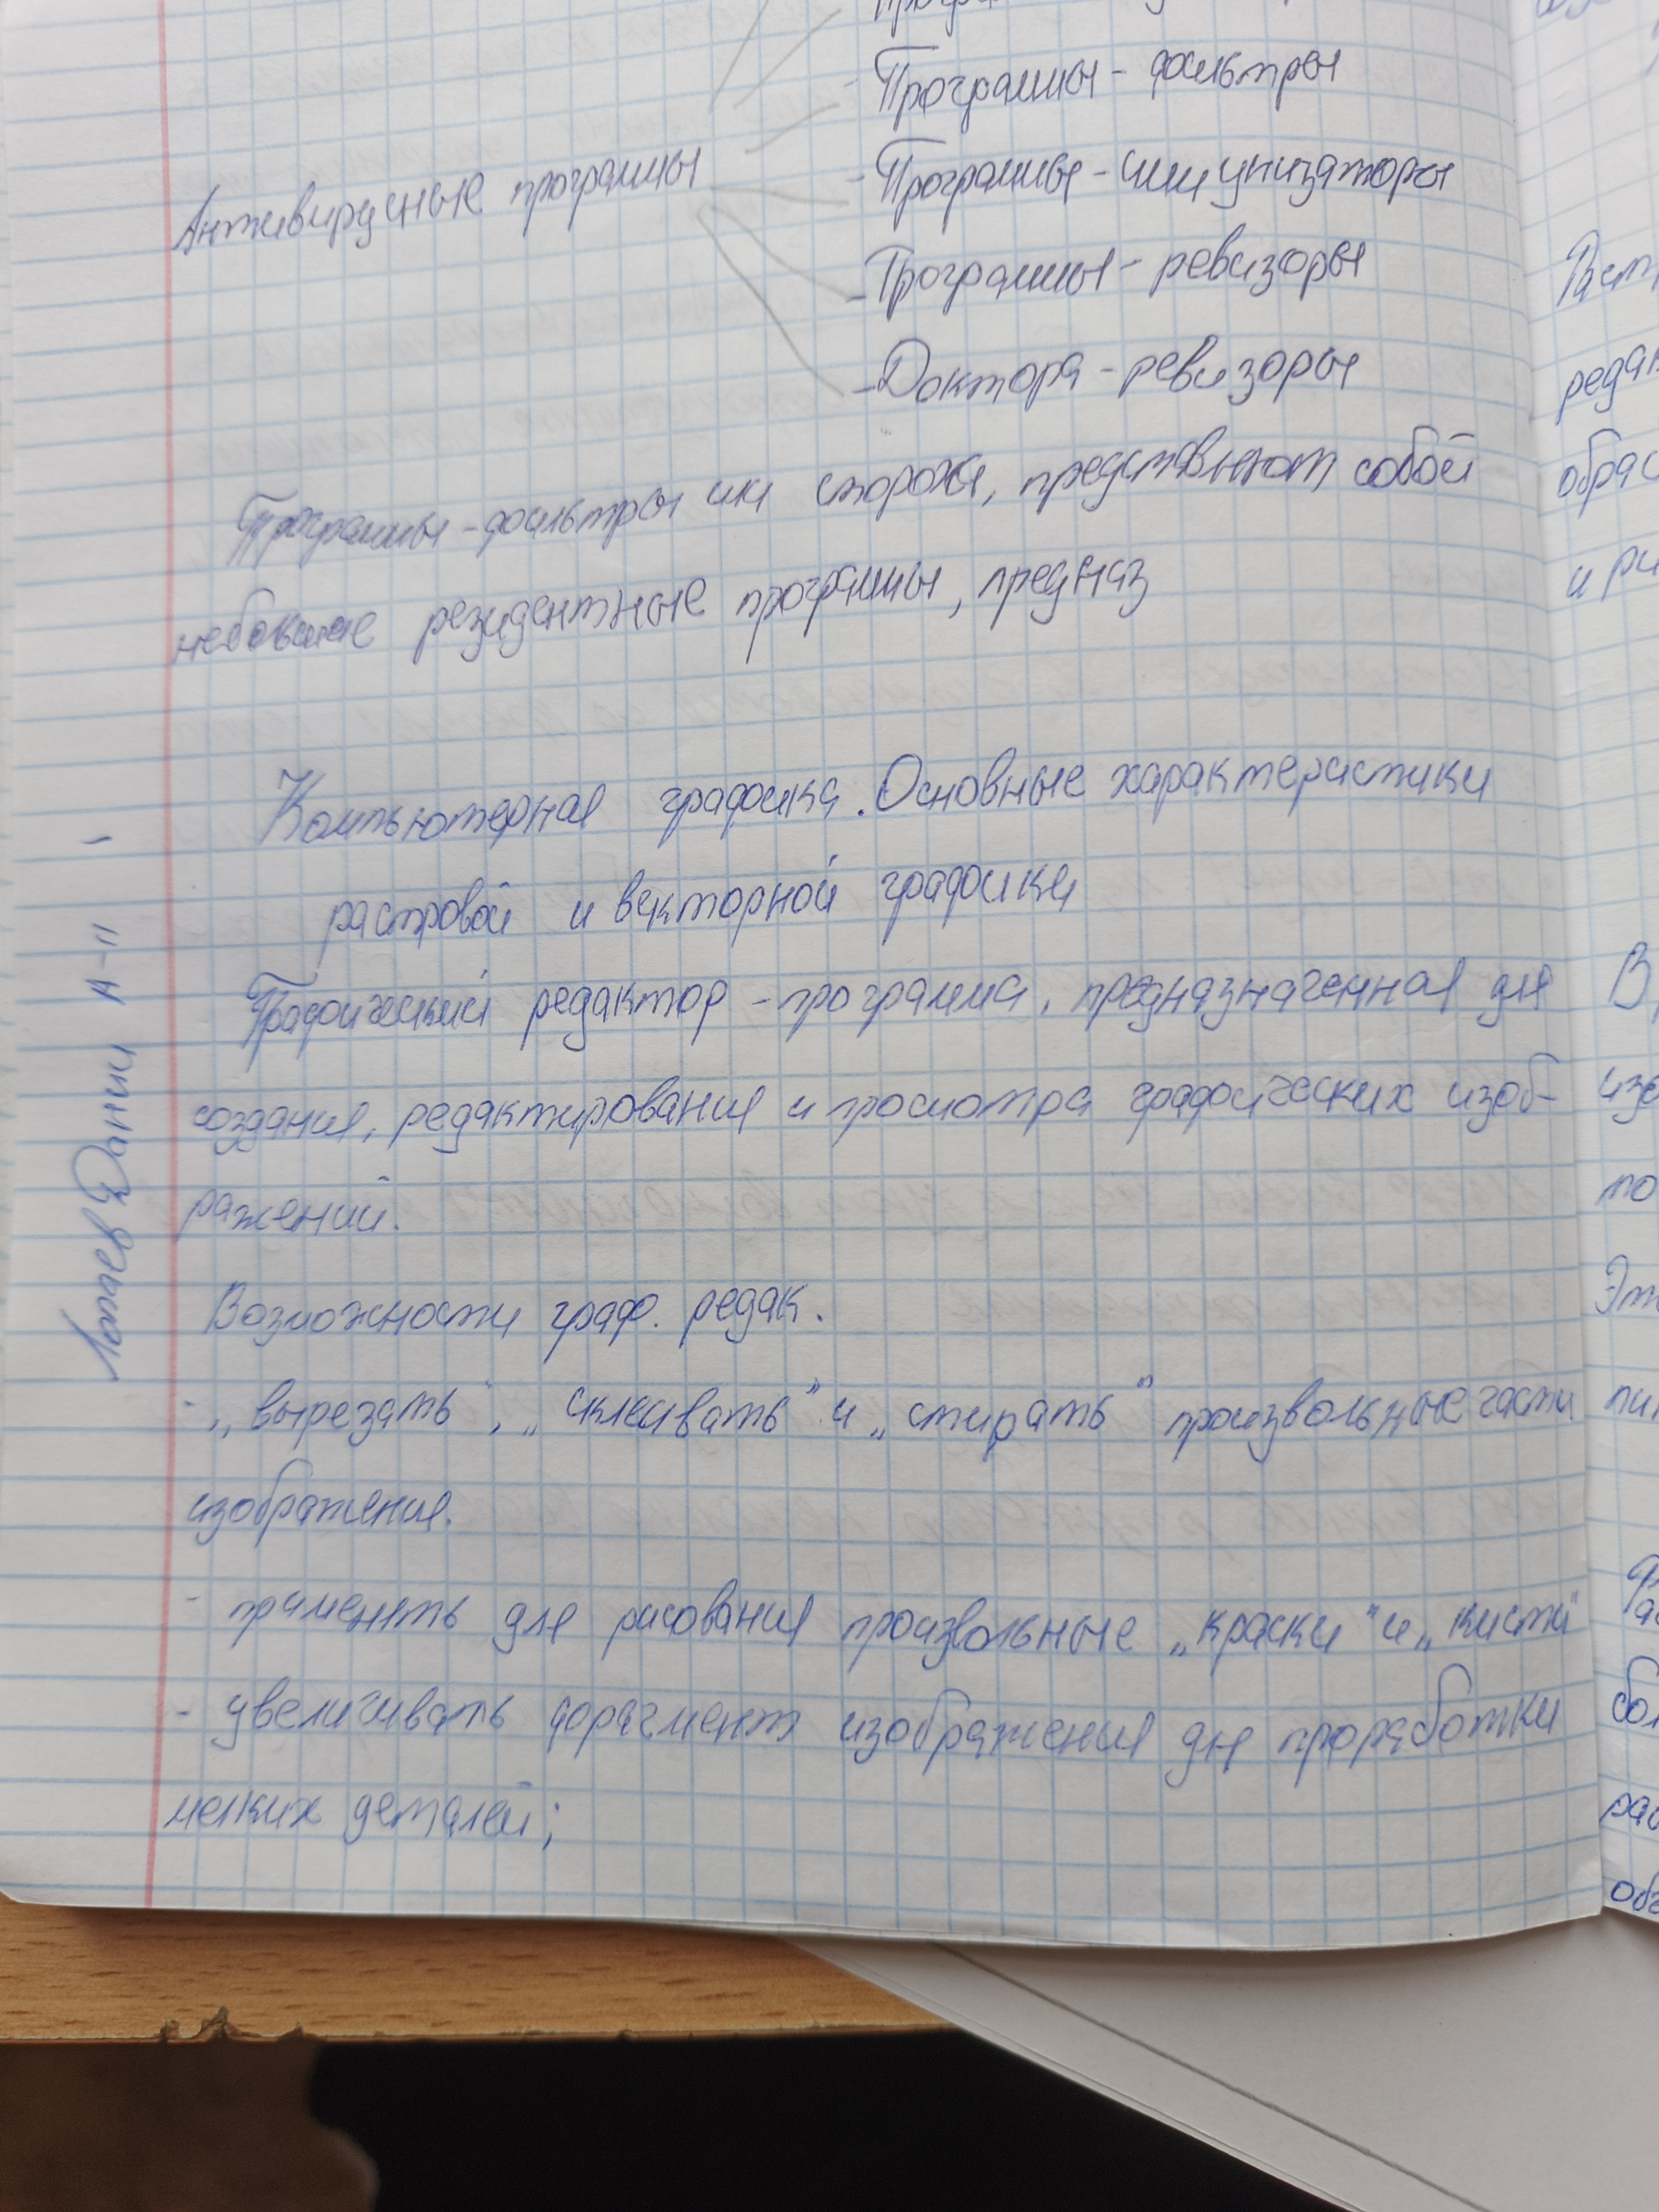 Программы - фильтры
Программы - иммунизаторы
Антивирусные программы
- Программы - ревизоры
- Доктора - ревизоры
Программы - фильтры или сторожа, представляют собой
небольшие резидентные программы, предназ
Компьютерная графика. Основные характеристики
растровой и векторной графики
Графический редактор - программа, предназначенная для
создания, редактирования и просмотра графических изоб-
ражений.
Возможности граф. редак.
- „вырезать", „склеивать" и „стирать" произвольные части
изображения.
- применять для рисования произвольные „краски" и „кисти"
- увеличивать фрагмент изображения для проработки
мелких деталей;
Даниил А-11
Раст
редак
обрас
и ри
В
изо
по
Эт
бол
рас